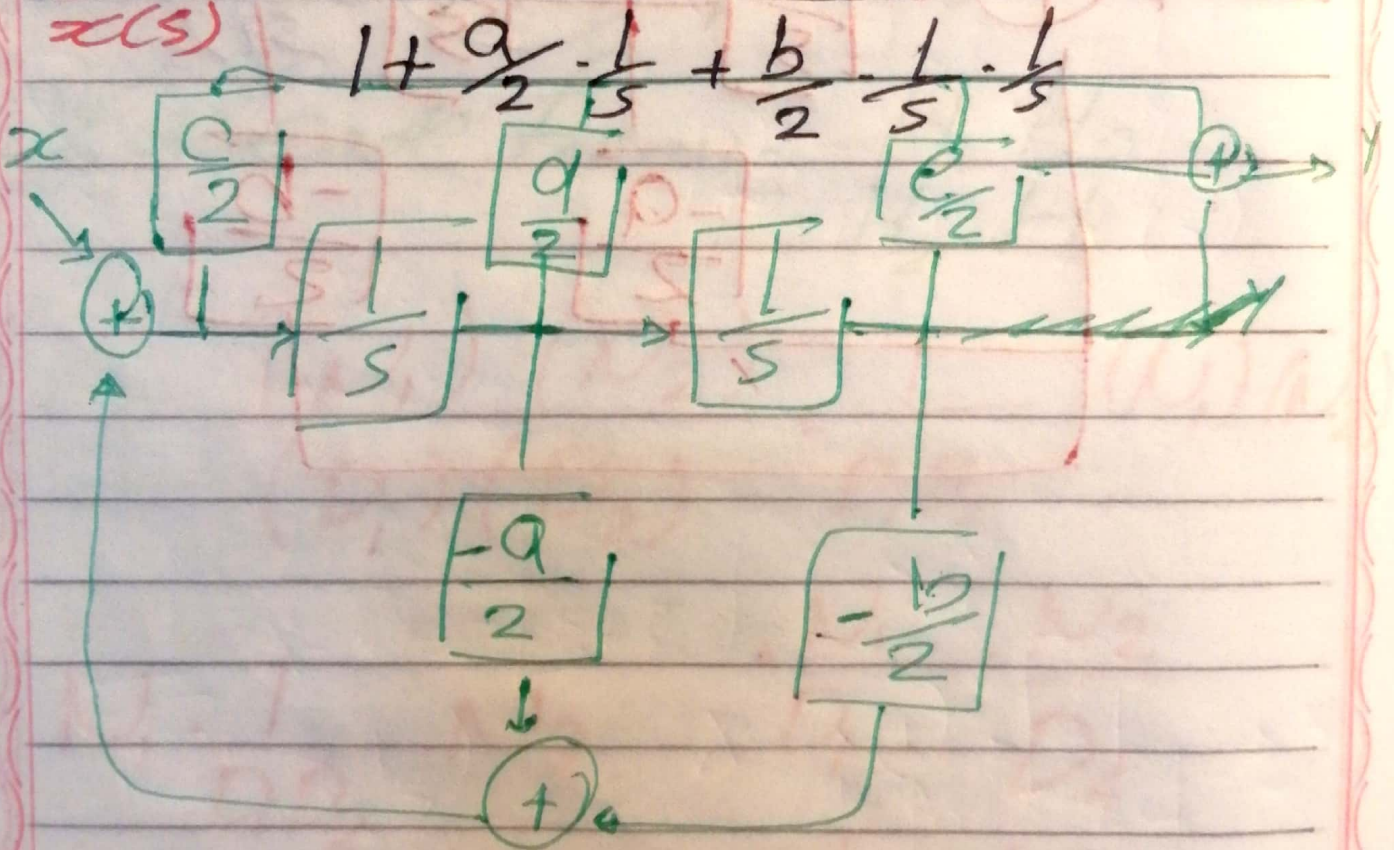 x(s)
1 + a/2 · 1/s + b/2 · 1/s · 1/s
x
c/2
d/2
e/2
+
Y
+
1
1/s
1/s
Y
-a/2
-b/2
+